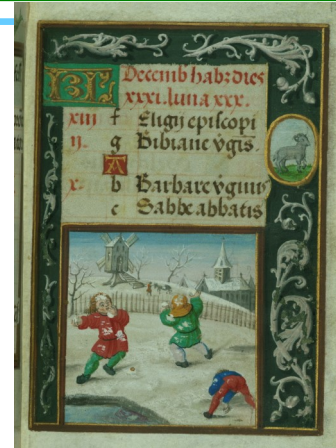 KL Decemb habz dies
xxxi. luna xxx.
xiii f Eligii episcopi
ij. g Bibiane v̾gis.
A
x. b Barbare v̾ginis
c Sabbe abbatis